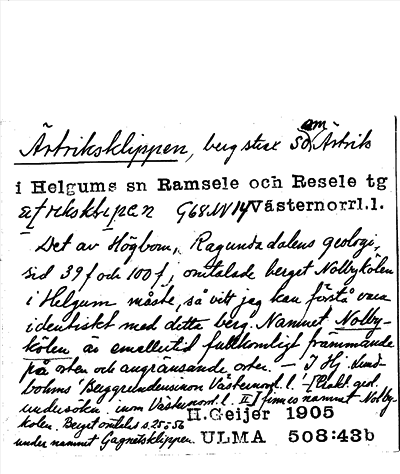 Ärtriksklippen, berg strax SOm Ärtrik
i Helgums sn Ramsele och Resele tg
G68NV14 Västernorrl.l.
Det av Högbom, Ragundadalens geologi,
sid 39 f och 100 f, omtalade berget Nolbykölen
i Helgum måste, så vitt jag kan förstå vara
identiskt med detta berg. Namnet Nolby-
kölen är emellertid fullkomligt främmande
på orten och angränsande orter. – I Hj. Lund-
bohms 'Berggrunden inom Västernorrl. l.' [Prakt. geol.
undersökn. inom Västernorrl. l. II] finnes namnet Nolby-
kölen. Berget omtalas s. 25, 56
under namnet Gagnetsklippen.
H.Geijer 1905
ULMA 508:43b